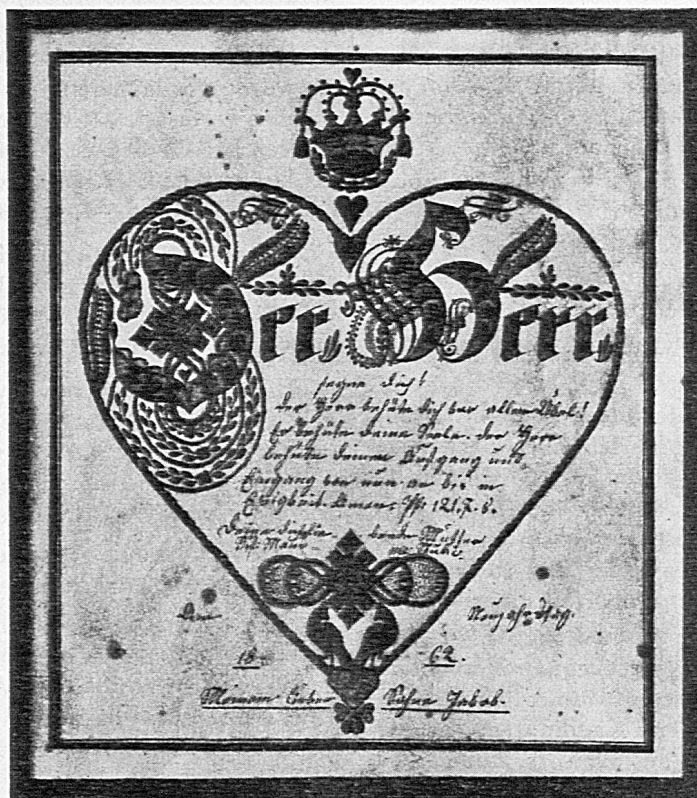 Der Herr
segne dich!
der Herr behüte dich vor allem Übel!
Er behüte deine Seele. der Herr
behüte deinen Ausgang und
Eingang von nun an bis in
Ewigkeit. Amen. Ps: 121. 7. 8.
Deine dich liebende Mutter
Am Neujahrstag.
18 62.
Meinem lieben Sohne Jakob.